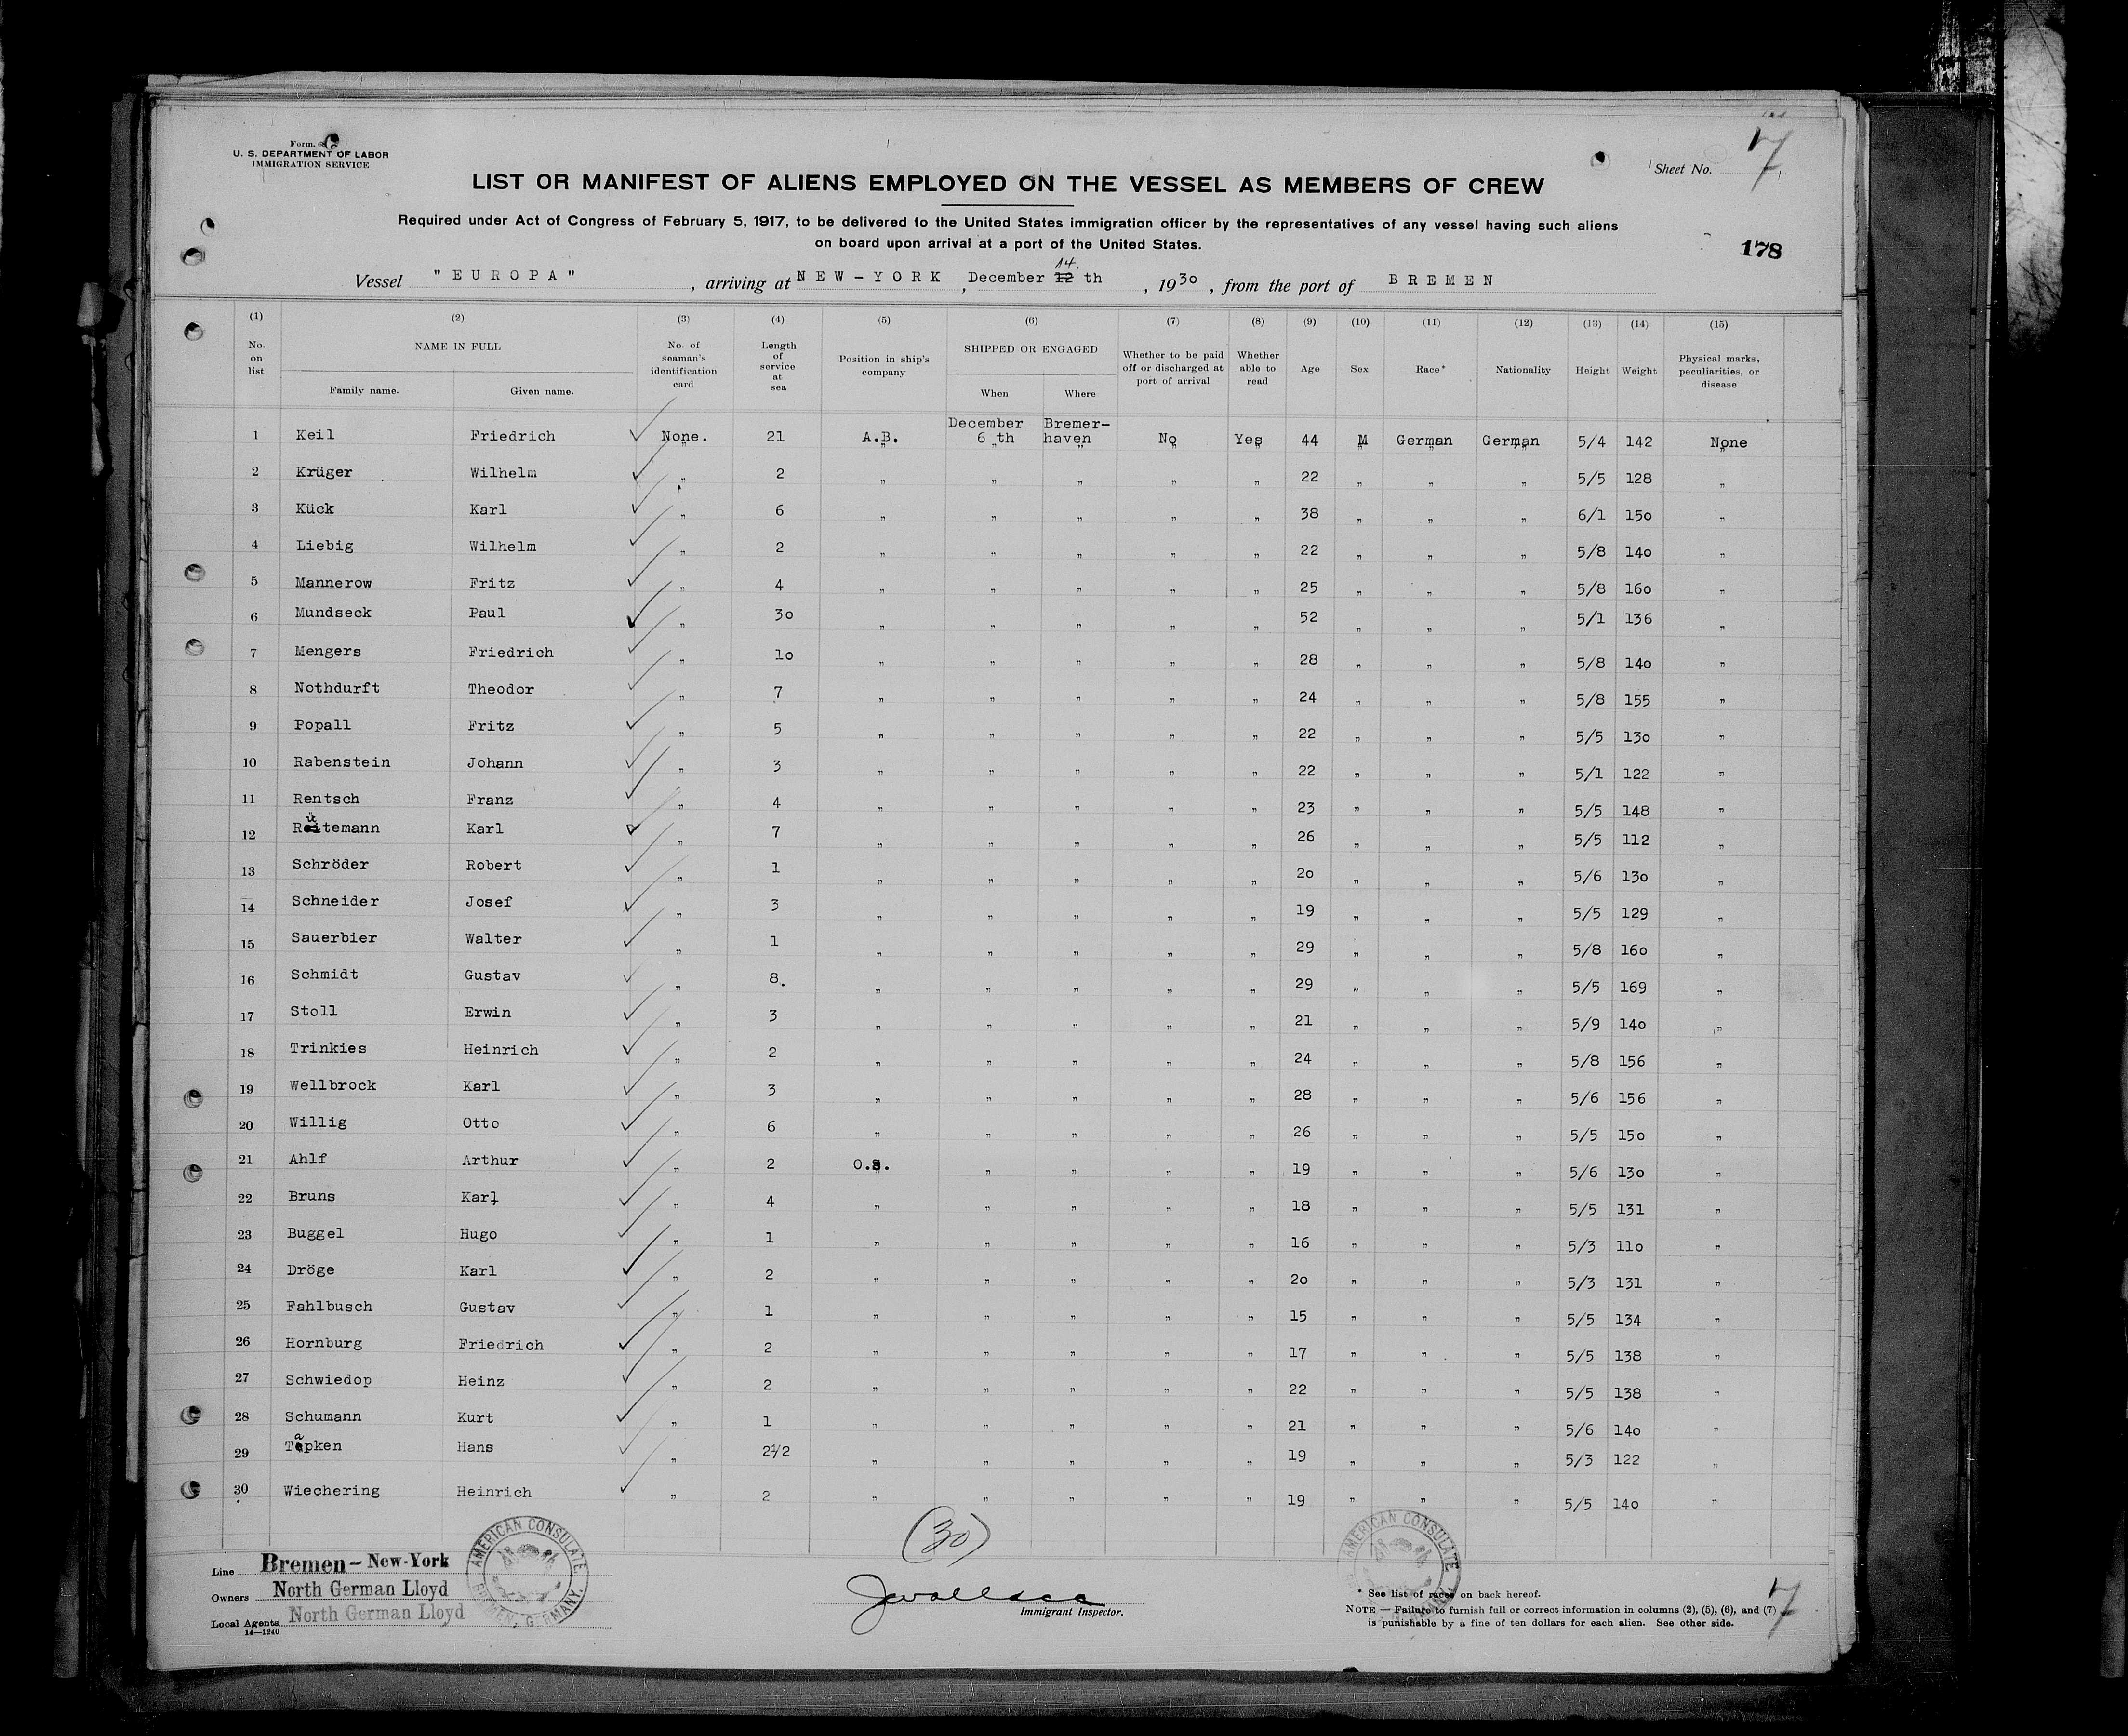 Form
U. S. DEPARTMENT OF LABOR
IMMIGRATION SERVICE
Sheet No. 7
LIST OR MANIFEST OF ALIENS EMPLOYED ON THE VESSEL AS MEMBERS OF CREW
Required under Act of Congress of February 5, 1917, to be delivered to the United States immigration officer by the representatives of any vessel having such aliens
on board upon arrival at a port of the United States.
178
Vessel "EUROPA", arriving at NEW-YORK, December 12 14 th, 1930, from the port of BREMEN
(1) (2) (3) (4) (5) (6) (7) (8) (9) (10) (11) (12) (13) (14) (15)
No. on list NAME IN FULL Family name. Given name. No. of seaman's identification card Length of service at sea Position in ship's company SHIPPED OR ENGAGED When Where Whether to be paid off or discharged at port of arrival Whether able to read Age Sex Race* Nationality Height Weight Physical marks, peculiarities, or disease
1 Keil Friedrich None. 21 A.B. December 6 th Bremer-haven No Yes 44 M German German 5/4 142 None
2 Krüger Wilhelm " 2 " " " " " 22 " " " 5/5 128 "
3 Kück Karl " 6 " " " " " 38 " " " 6/1 150 "
4 Liebig Wilhelm " 2 " " " " " 22 " " " 5/8 140 "
5 Mannerow Fritz " 4 " " " " " 25 " " " 5/8 160 "
6 Mundseck Paul " 30 " " " " " 52 " " " 5/1 136 "
7 Mengers Friedrich " 10 " " " " " 28 " " " 5/8 140 "
8 Nothdurft Theodor " 7 " " " " " 24 " " " 5/8 155 "
9 Popall Fritz " 5 " " " " " 22 " " " 5/5 130 "
10 Rabenstein Johann " 3 " " " " " 22 " " " 5/1 122 "
11 Rentsch Franz " 4 " " " " " 23 " " " 5/5 148 "
12 Rütemann Karl " 7 " " " " " 26 " " " 5/5 112 "
13 Schröder Robert " 1 " " " " " 20 " " " 5/6 130 "
14 Schneider Josef " 3 " " " " " 19 " " " 5/5 129 "
15 Sauerbier Walter " 1 " " " " " 29 " " " 5/8 160 "
16 Schmidt Gustav " 8. " " " " " 29 " " " 5/5 169 "
17 Stoll Erwin " 3 " " " " " 21 " " " 5/9 140 "
18 Trinkies Heinrich " 2 " " " " " 24 " " " 5/8 156 "
19 Wellbrock Karl " 3 " " " " " 28 " " " 5/6 156 "
20 Willig Otto " 6 " " " " " 26 " " " 5/5 150 "
21 Ahlf Arthur " 2 O.S. " " " " 19 " " " 5/6 130 "
22 Bruns Karl " 4 " " " " " 18 " " " 5/5 131 "
23 Buggel Hugo " 1 " " " " " 16 " " " 5/3 110 "
24 Dröge Karl " 2 " " " " " 20 " " " 5/3 131 "
25 Fahlbusch Gustav " 1 " " " " " 15 " " " 5/5 134 "
26 Hornburg Friedrich " 2 " " " " " 17 " " " 5/5 138 "
27 Schwiedop Heinz " 2 " " " " " 22 " " " 5/5 138 "
28 Schumann Kurt " 1 " " " " " 21 " " " 5/6 140 "
29 Tapken Hans " 2½ " " " " " 19 " " " 5/3 122 "
30 Wiechering Heinrich " 2 " " " " " 19 " " " 5/5 140 "
(30)
AMERICAN CONSULATE BREMEN, GERMANY.
AMERICAN CONSULATE
Line Bremen-New-York
Owners North German Lloyd
Local Agents North German Lloyd
14-1240
JWallace
Immigrant Inspector.
* See list of races on back hereof.
NOTE — Failure to furnish full or correct information in columns (2), (5), (6), and (7)
is punishable by a fine of ten dollars for each alien. See other side.
7